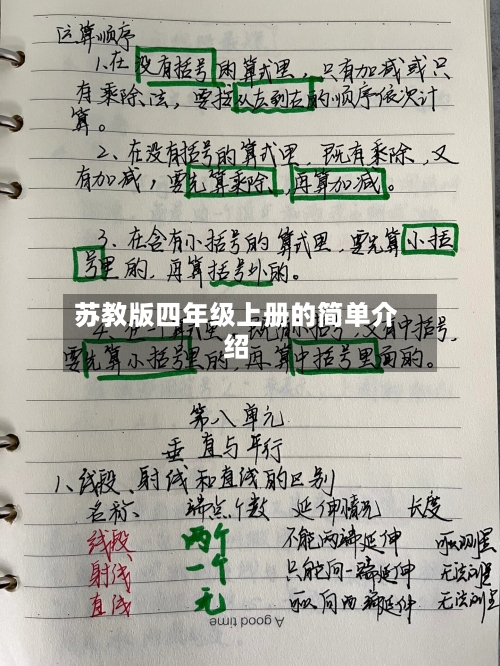 运算顺序
1、在没有括号的算式里，只有加减或只
有乘除法，要按从左到右的顺序依次计
算。
2、在没有括号的算式里，既有乘除，又
有加减，要先算乘除，再算加减。
3、在含有小括号的算式里，要先算小括
号里的，再算括号外的。
苏教版四年级上册的简单介
绍
4、在一个算式里，既有小括号，又有中括号，
要先算小括号里的，再算中括号里面的。
第八单元
垂直与平行
1、线段、射线和直线的区别
名称、 端点个数 延伸情况 长度
线段 两个 不能两端延伸 可以测量
射线 一个 只能向一端延伸 无法测量
直线 无 可以向两端延伸 无法测量
A good time